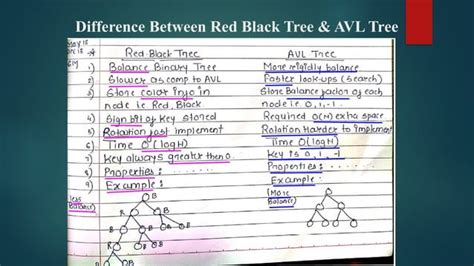 Difference Between Red Black Tree & AVL Tree
May 18
Red-Black Tree AVL Tree
1) Balance Binary Tree More rigidly balance
2) Slower as comp to AVL Faster look-ups (search)
3) Store color info in Store Balance factor of each
node i.e Red, Black node i.e 0,1,-1
4) Sign bit of Key stored Required O(N) extra space
5) Rotation just implement Rotation Harder to implement
6) Time O(logN) Time O(logN)
7) Key always greater then 0 Key is 0, 1, -1
8) Properties: Properties:
9) Example: Example:
(less Balance) (More Balance)
B
R B
B B
R
B